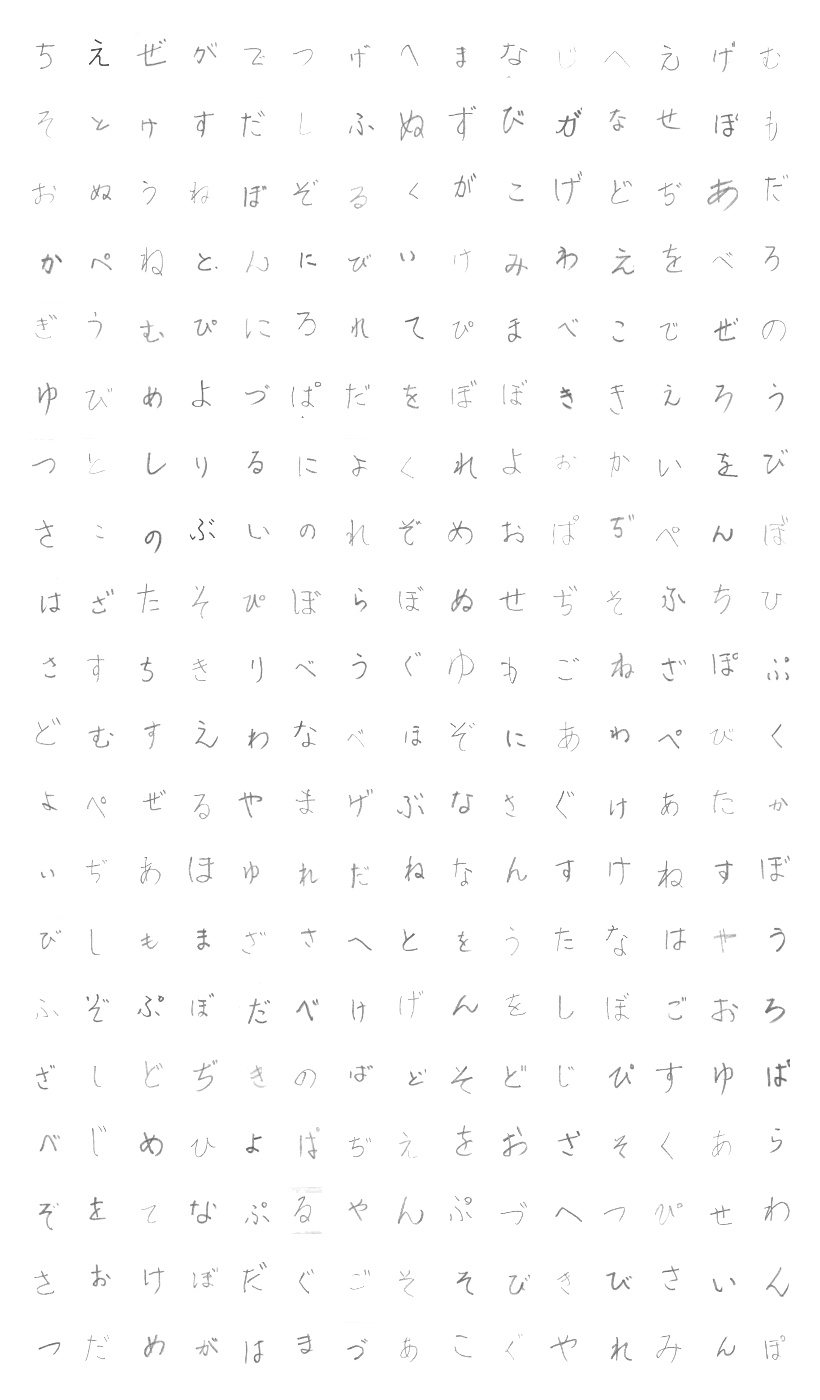 ちえぜがでつげへまなじへえげむ
そとけすだしふぬずびがなせぼも
おぬうねぼぞるくがこげどぢあだ
かぺねとんにびいけみわえをべろ
ぎうむぴにろれてぴまべこでぜの
ゆびめよづぱだをぼぼききえろう
つとしりるによくれよおかいをび
さこのぶいのれぞめおぱぢぺんぼ
はざたそぴぼらぼぬせぢそふちひ
さすちきりべうぐゆもごねざぽぷ
どむすえわなべほぞにあわぺびく
よぺぜるやまげぶなさぐけあたか
いぢあほゆれだねなんすけねすぼ
びしもまざさへとをうたなはやう
ふぞぷぼだべけげんをしぼごおろ
ざしどぢきのばどそどじぴすゆば
べじめひよぱぢえをおざそくあら
ぞをてなぷるやんぷづへつぴせわ
さおけぼだぐごそそびきびさいん
つだめがはまづあこぐやれみんぽ